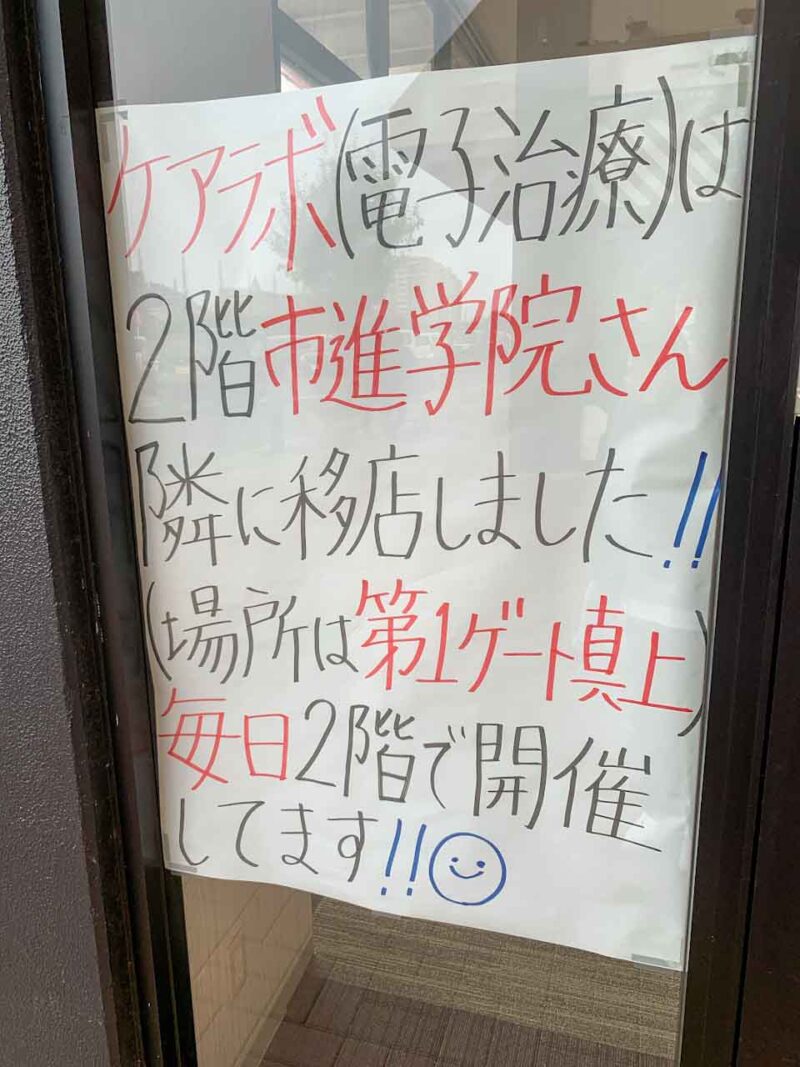 ケアラボ(電子治療)は
2階市進学院さん
隣に移店しました!!
(場所は第1ゲート真上)
毎日2階で開催
してます!!